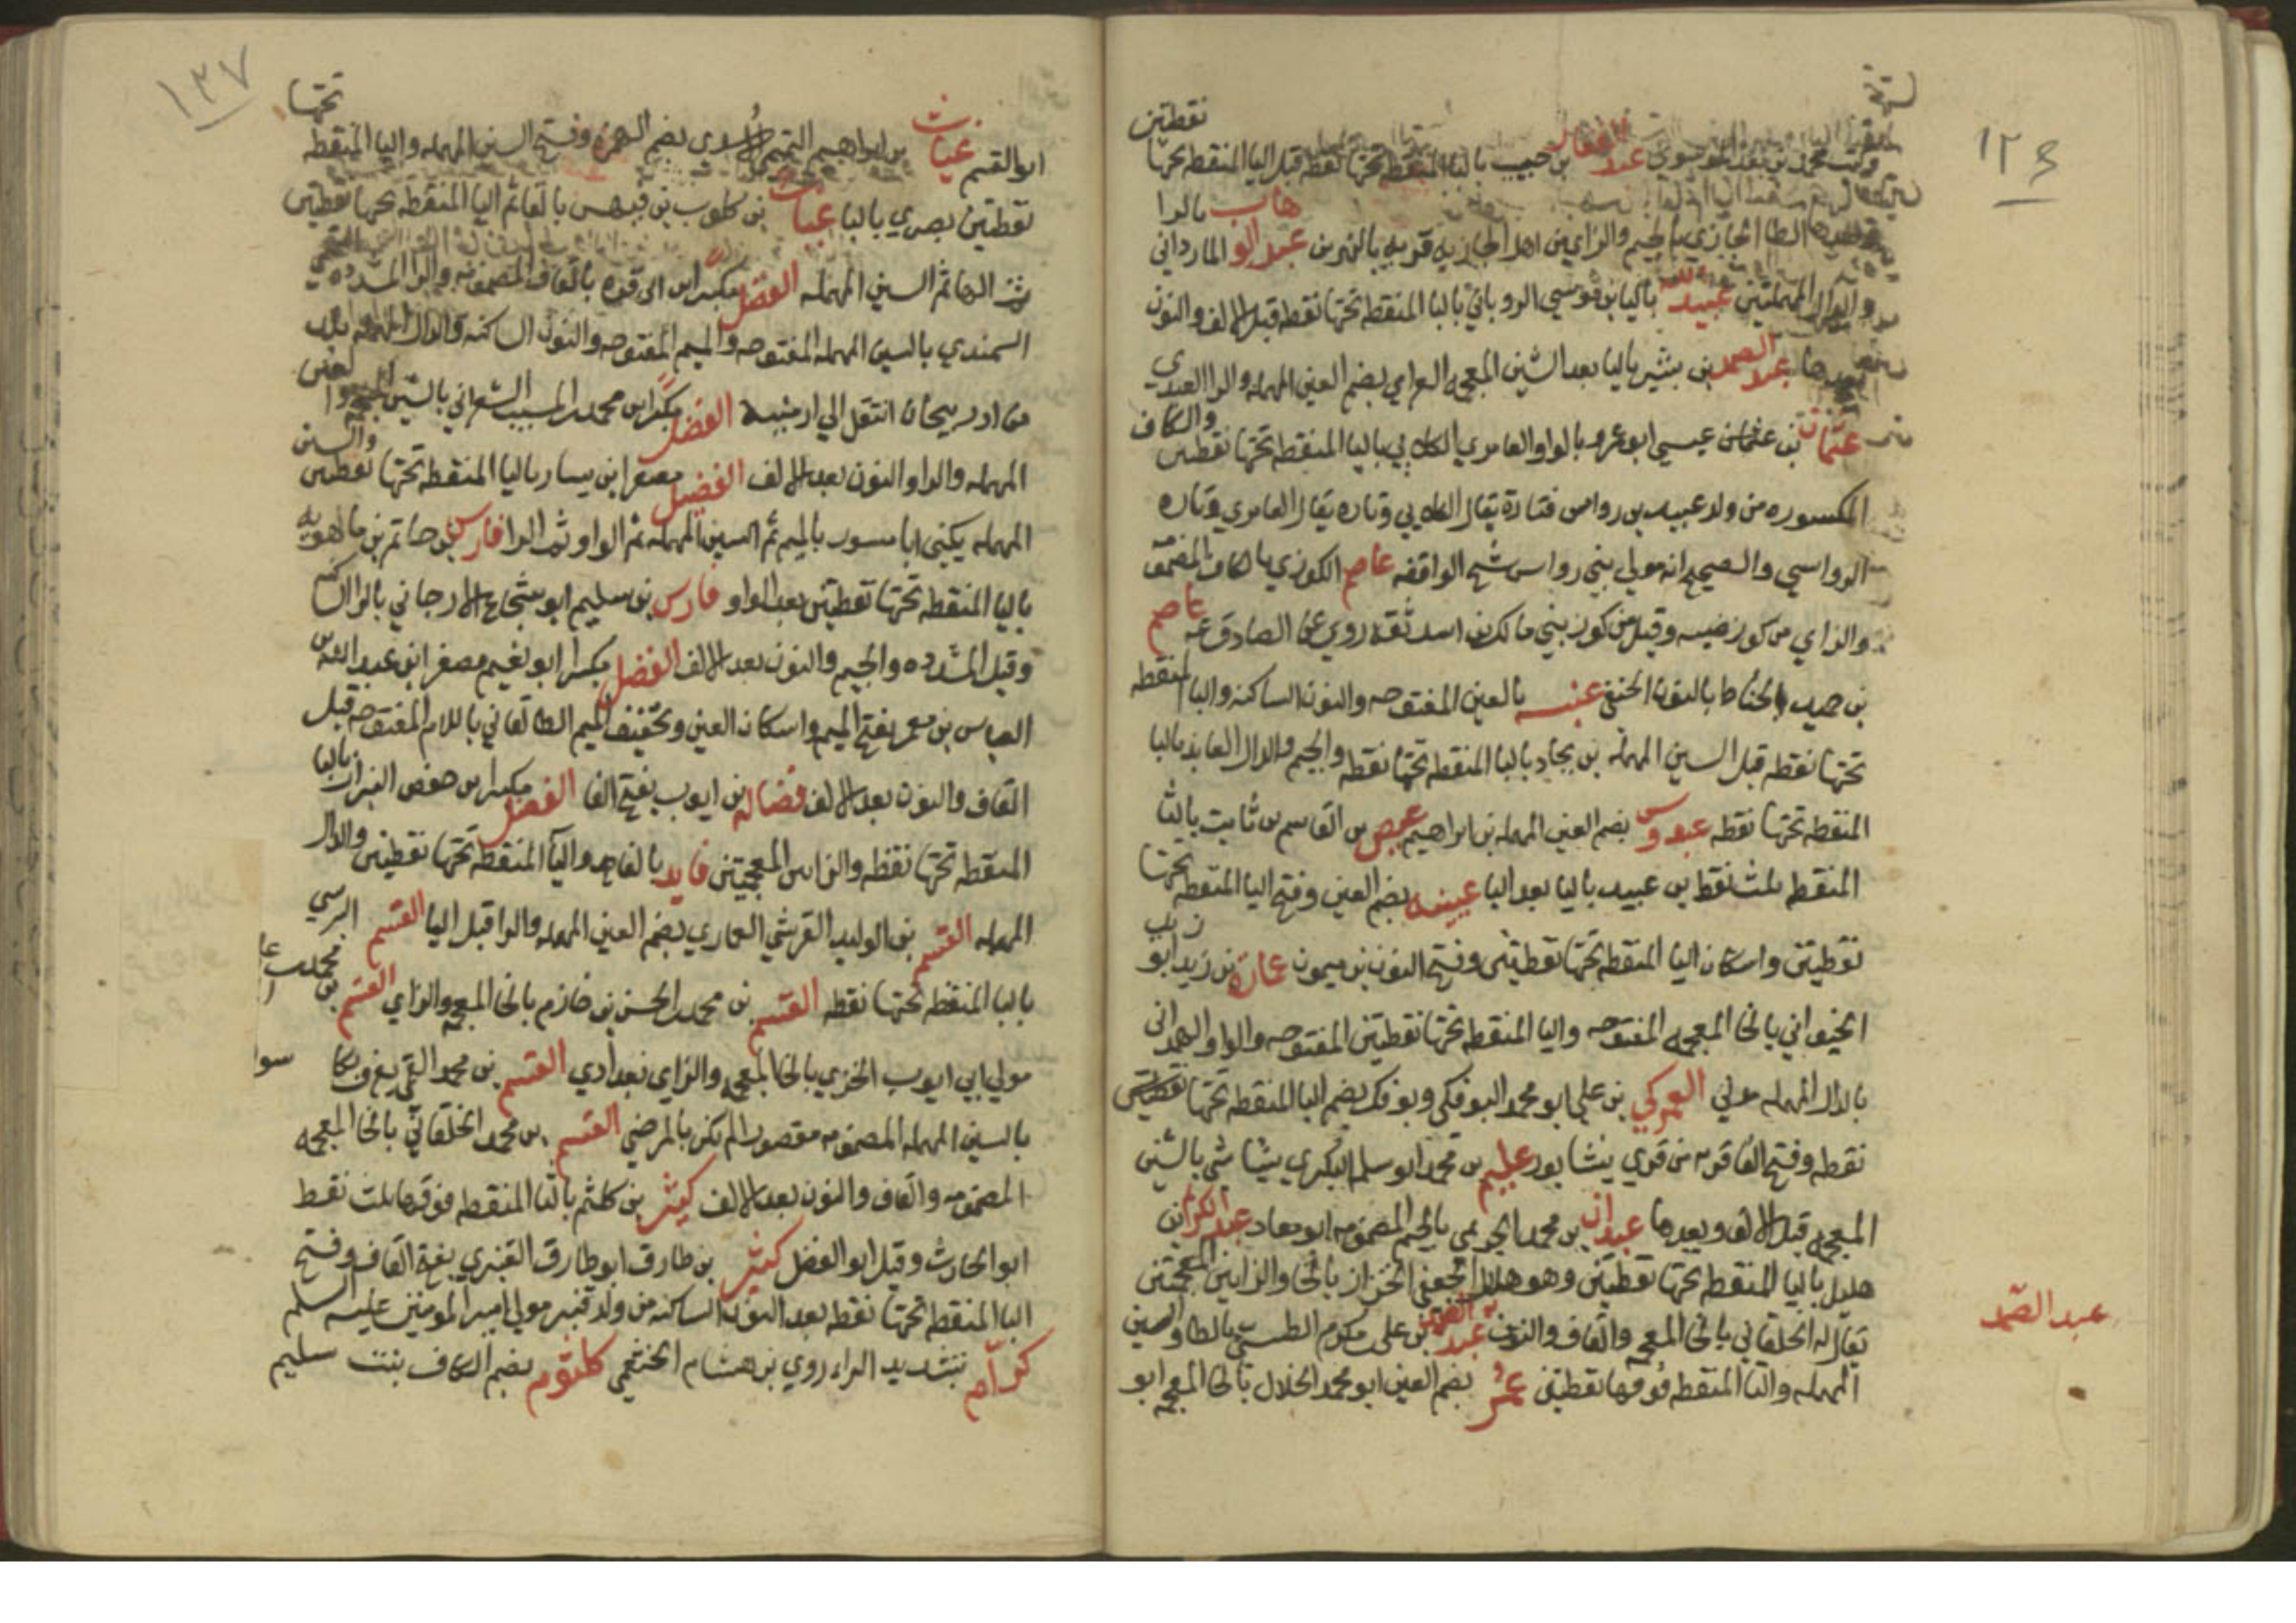 ١٣٦
نقطتين
بن حبيب بالبا المنقطه تحتها نقطه قبل اليا المنقطه تحتها
الحجازي بالجيم والزاي من اهل الجازيه قريه بالنهرين عبد الوهاب المارداني بالرا
والدال المهملتين عبيد الله باليا بن موسي الروياني باليا المنقطه تحتها نقطه قبل الالف والنون
بعدها عبد الصمد بن بشير باليا بعد الشين المعجمه العرامي بضم العين المهمله والرا العبدي
عثمان بن عيسي ابو عمرو بالواو العامري الكلابي باليا المنقطه تحتها نقطتين والكاف
المكسوره من ولد عبيد بن رواس فتارة يقال الكلابي وتاره يقال العامري وتاره
الرواسي والصحيح انه مولي بني رواس شيخ الواقفه عاصم الكوزي بالكاف المضمومه
والزاي من كوز ضبيه وقيل من كوز بني مالك بن اسد ثقة روي عن الصادق عه عاصم
بن حميد الحناط بالنون الحنفي عنبسه بالعين المفتوحه والنون الساكنه والبا المنقطه
تحتها نقطه قبل السين المهمله بن بجاد بالبا المنقطه تحتها نقطه والجيم والدال العابد بالبا
المنقطه تحتها نقطه عبدوس بضم العين المهمله بن ابراهيم عيص بن القاسم بن ثابت بالثا
المنقطه بثلث نقط بن عبيد باليا بعد البا عيينه بضم العين وفتح اليا المنقطه تحتها
نقطيتن واسكان اليا المنقطه تحتها نقطيتن وفتح النون بن ميمون عماره بن زيد ابو زيد
الخيواني بالخا المعجمه المفتوحه واليا المنقطه تحتها نقطيتن المفتوحه والواو الهمداني
بالدال المهمله مولي العمركي بن علي ابو محمد البوفكي وبوفك بضم البا المنقطه تحتها
نقطه وفتح الفا قريه من قري نيشابور عليم بن محمد ابو سلمه البكري الشاشي بالشين
المعجمه قبل الالف وبعدها عبدان بن محمد الجويمي بالجيم المضمومه ابو معاذ عبد الكريم بن
هليل باليا المنقطه تحتها نقطيتن وهو هلال الجعفي الخزاز بالخا والزايين المعجمتين
يقال له الخلقاني بالخا المعجمه والقاف والنون عبد الصمد بن علي بن مكرم الطستي بالطا والسين
عبد الصمد
المهمله والتا المنقطه فوقها نقطيتن عمر بضم العين ابو محمد الخلال بالخا المعجمه ابو
١٣٧
ابو القسم غياث بن ابراهيم التميمي الاسيدي بضم الهمزه وفتح السين المهمله واليا المنقطه تحتها
نقطتين بصري باليا غياث بن كلوب بن فيهس بالفا ثم اليا المنقطه تحتها نقطتين
ثم الها ثم السين المهمله الفضل مكبرا بن ابي قره بالقاف المضمومه والرا المشدده التميمي
السمندي بالسين المهمله المفتوحه والميم المفتوحه والنون الساكنه والدال المهمله بلد
من ادربيجان انتقل الي ارمنيه الفضل مكبرا بن محمد بن المسيب الشعراني بالشين المعجمه والعين
المهمله والرا والنون بعد الالف الفضيل مصغرا بن يسار باليا المنقطه تحتها نقطتين والسين
المهمله يكنى ابا مسور بالميم ثم السين المهمله ثم الواو ثم الرا فارس بن حاتم بن ماهويه
باليا المنقطه تحتها نقطتين بعد الواو فارس بن سليم ابو شجاع الارجاني بالرا الساكنه
وقيل المشدده والجيم والنون بعد الالف الفضل مكبرا ابو نعيم مصغرا بن عبد الله بن
العباس بن معمر بفتح الميم واسكان العين وتخفيف الميم الطالقاني باللام المفتوحه قبل
القاف والنون بعد الالف فضاله بن ايوب بفتح الفا الفضل مكبرا بن حفص البزاز بالبا
المنقطه تحتها نقطه والزاين المعجمتين فايد بالفا واليا المنقطه تحتها نقطتين والدال
المهمله القسم بن الوليد القرشي العماري بضم العين المهمله والرا قبل اليا القسم البرسي
بالبا المنقطه تحتها نقطه القسم بن محمد بن الحسن بن خازم بالخا المعجمه والزاي القسم بن محمد
مولي ابي ايوب الخزي بالخا المعجمه والزاي بغدادي القسم بن محمد القمي يعرف بكا سولا
بالسين المهمله المضمومه مقصورا لم يكن بالمرضي القسم بن محمد الخلقاني بالخا المعجمه
المضمومه والقاف والنون بعد الالف كثير بن كلثم بالثا المنقطه فوقها بثلث نقط
ابو الحارث وقيل ابو الفضل كثير بن طارق ابو طارق القنبري بفتح القاف وفتح
البا المنقطه تحتها نقطه بعد النون الساكنه من ولد قنبر مولي امير المومنين عليه السلم
كرام بتشديد الراء روي بن هشام الخثعمي كلثوم بضم الكاف بنت سليم